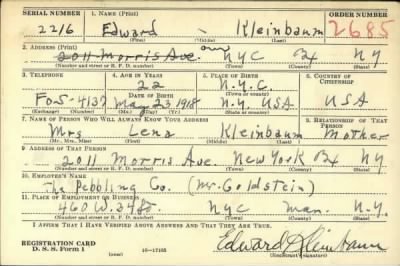 SERIAL NUMBER 1. NAME (Print) ORDER NUMBER
2216 Edward - Kleinbaum 2685
(First) (Middle) (Last)
2. ADDRESS (Print)
2011 Morris Ave. NYC Bx NY
(Number and street or R. F. D. number) (Town) (County) (State)
3. TELEPHONE 4. AGE IN YEARS 5. PLACE OF BIRTH 6. COUNTRY OF CITIZENSHIP
22 N.Y.C.
DATE OF BIRTH (Town or county)
FO-5-4137 May 23 1918 N.Y. USA USA
(Exchange) (Number) (Mo.) (Day) (Yr.) (State or country)
7. NAME OF PERSON WHO WILL ALWAYS KNOW YOUR ADDRESS 8. RELATIONSHIP OF THAT PERSON
Mrs Lena Kleinbaum Mother
(Mr., Mrs., Miss) (First) (Middle) (Last)
9. ADDRESS OF THAT PERSON
2011 Morris Ave. New York Bx NY
(Number and street or R. F. D. number) (Town) (County) (State)
10. EMPLOYER'S NAME
The Pebbling Co. (Mr. Goldstein)
11. PLACE OF EMPLOYMENT OR BUSINESS
460 W. 34 St NYC Man. N.Y.
(Number and street or R. F. D. number) (Town) (County) (State)
I AFFIRM THAT I HAVE VERIFIED ABOVE ANSWERS AND THAT THEY ARE TRUE.
REGISTRATION CARD
D. S. S. Form 1 16-17105 Edward Kleinbaum
(Registrant's signature)